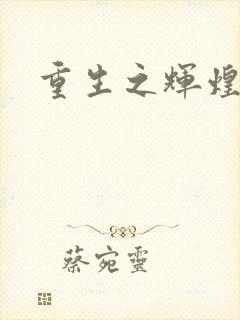 重生之輝煌
蔡宛靈